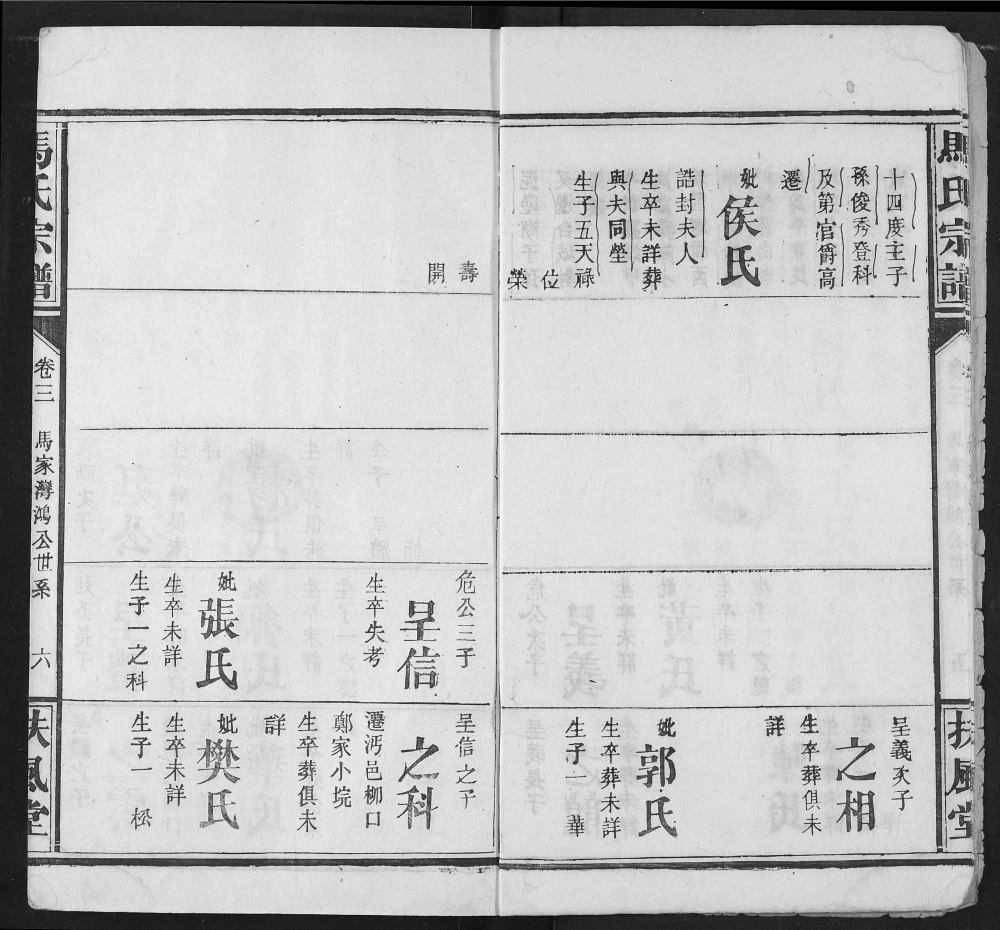 馬氏宗譜
扶風堂
十四度主子
孫俊秀登科
及第官爵高
遷
妣侯氏
誥封夫人
生卒未詳葬
與夫同塋
生子五天祿
位
榮
壽
開
呈義次子
之相
生卒葬俱未
詳
妣郭氏
生卒葬未詳
生子一華
危公三子
呈信
生卒失考
妣張氏
生卒未詳
生子一之科
呈信之子
之科
遷沔邑柳口
鄭家小垸
生卒葬俱未
詳
妣樊氏
生卒未詳
生子一松
馬氏宗譜
卷三
馬家灣鴻公世系
六
扶風堂